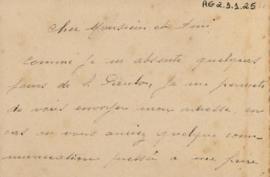 AG 2.9.1.25
Cher Monsieur et Ami
Comme je m'absente quelques
jours de S. je me permets
de vous envoyer mon adresse, en
cas où vous auriez quelque com-
munication pressée à me faire